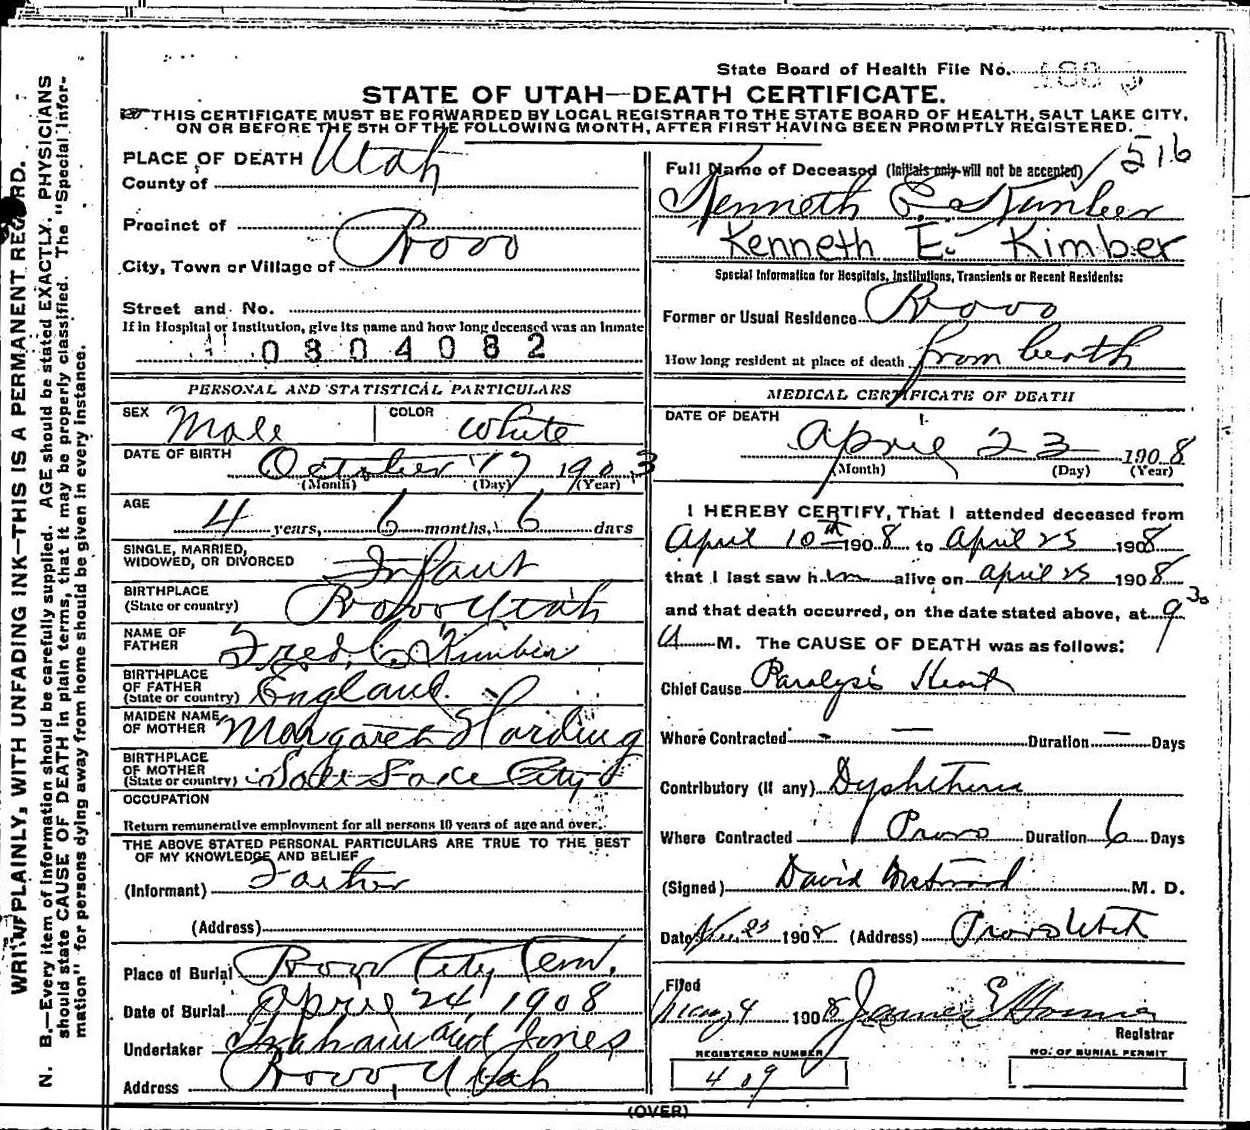 State Board of Health File No.
STATE OF UTAH—DEATH CERTIFICATE.
THIS CERTIFICATE MUST BE FORWARDED BY LOCAL REGISTRAR TO THE STATE BOARD OF HEALTH, SALT LAKE CITY,
ON OR BEFORE THE 5TH OF THE FOLLOWING MONTH, AFTER FIRST HAVING BEEN PROMPTLY REGISTERED.
PLACE OF DEATH
County of Utah
Precinct of
City, Town or Village of Provo
Street and No.
If in Hospital or Institution, give its name and how long deceased was an inmate
0804082
PERSONAL AND STATISTICAL PARTICULARS
SEX Male COLOR White
DATE OF BIRTH October 17 1903
(Month) (Day) (Year)
AGE
4 years, 6 months, 6 days
SINGLE, MARRIED,
WIDOWED, OR DIVORCED Infant
BIRTHPLACE
(State or country) Provo Utah
NAME OF
FATHER Fred. C. Kimber
BIRTHPLACE
OF FATHER
(State or country) England.
MAIDEN NAME
OF MOTHER Margaret Harding
BIRTHPLACE
OF MOTHER
(State or country) Salt Lake City
OCCUPATION
Return remunerative employment for all persons 10 years of age and over.
THE ABOVE STATED PERSONAL PARTICULARS ARE TRUE TO THE BEST
OF MY KNOWLEDGE AND BELIEF
(Informant) Father
(Address)
Place of Burial Provo City Cem.
Date of Burial April 24 1908
Undertaker Graham and Jones
Address Provo, Utah
516
Full Name of Deceased (Initials only will not be accepted)
Kenneth E. Kimber
Kenneth E. Kimber
Special Information for Hospitals, Institutions, Transients or Recent Residents:
Former or Usual Residence Provo
How long resident at place of death from berth
MEDICAL CERTIFICATE OF DEATH
DATE OF DEATH
April 23 1908
(Month) (Day) (Year)
I HEREBY CERTIFY, That I attended deceased from
April 10th 1908 to April 23 1908
that I last saw him alive on April 23 1908
and that death occurred, on the date stated above, at 9 30
a M. The CAUSE OF DEATH was as follows:
Chief Cause Paralysis Heart
Where Contracted — Duration — Days
Contributory (if any) Dyphtheria
Where Contracted Provo Duration 6 Days
(Signed) David M. D.
Date 23 1908 (Address) Provo Utah
Filed
May 4 1908 James E
Registrar
REGISTERED NUMBER
409
NO. OF BURIAL PERMIT
(OVER)
WRITE PLAINLY, WITH UNFADING INK—THIS IS A PERMANENT RECORD.
N. B.—Every item of information should be carefully supplied. AGE should be stated EXACTLY. PHYSICIANS
should state CAUSE OF DEATH in plain terms, that it may be properly classified. The "Special Infor-
mation" for persons dying away from home should be given in every instance.